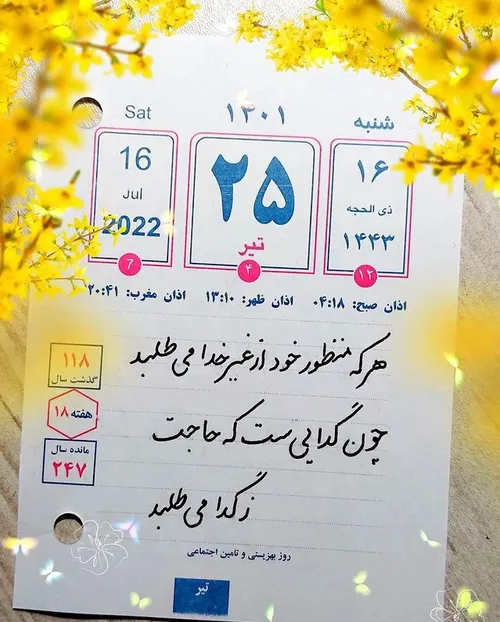 Sat ۱۴۰۱ شنبه
16 ۲۵ ۱۶
Jul تیر ذی الحجه
2022 ۱۴۴۳
7 ۴ ۱۲
اذان صبح: ۰۴:۱۸ اذان ظهر: ۱۳:۱۰ اذان مغرب: ۲۰:۴۱
هر که منظور خود از غیر خدا می طلبد
۱۱۸
گذشت سال
هفته ۱۸
چون گدایی ست که حاجت
مانده سال
۲۴۷
ز گدا می طلبد
روز بهزیستی و تامین اجتماعی
تیر